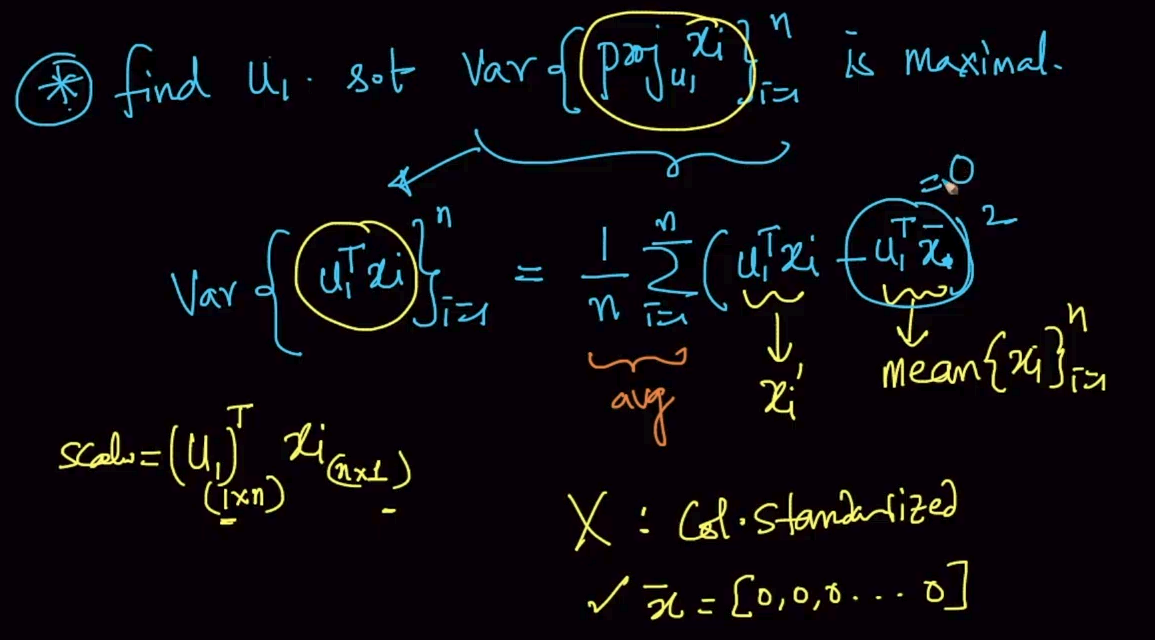 * find u₁. s.t Var{proj_u₁ xᵢ}ⁿᵢ₌₁ is maximal.
=0
Var{u₁ᵀxᵢ}ⁿᵢ₌₁ = 1/n Σⁿᵢ₌₁ (u₁ᵀxᵢ - u₁ᵀx̄)²
avg
xᵢ'
mean{xᵢ}ⁿᵢ₌₁
scalar = (u₁)ᵀ(1×n) xᵢ(n×1)
X : Col. Standardized
✓ x̄ = [0,0,0...0]